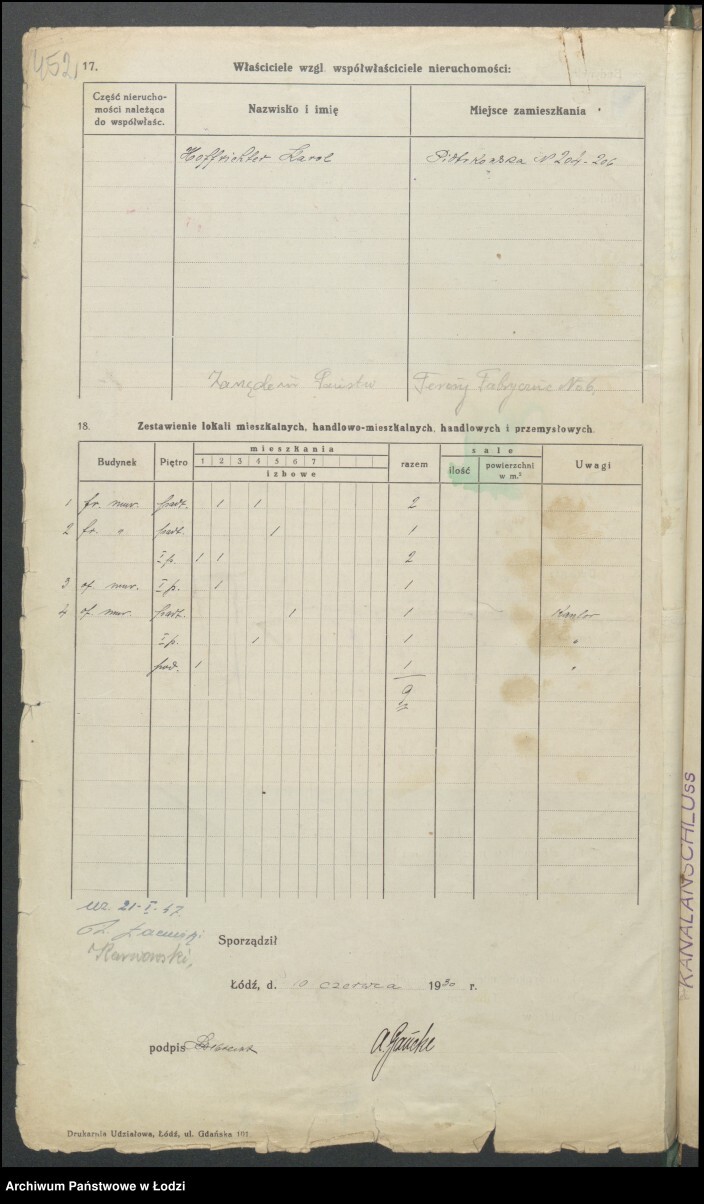 452,
17. Właściciele wzgl. współwłaściciele nieruchomości:
Część nierucho-
mości należąca
do współwłaśc.
Nazwisko i imię
Miejsce zamieszkania
Hoffrichter Karol Piotrkowska N 204-206
Zarządem Państw Tereny Fabryczne Nob.
18. Zestawienie lokali mieszkalnych, handlowo-mieszkalnych, handlowych i przemysłowych.
Budynek Piętro mieszkania razem sale Uwagi
1 2 3 4 5 6 7
izbowe
ilość powierzchni
w m.²
1 fr. mur. part. 1 1 2
2 fr. " part. 1 1
I p. 1 1 2
3 of. mur. I p. 1 1
4 of. mur. part. 1 1 Kantor
I p. 1 1 "
pod. 1 1 "
9
uz. 21-I-47
Karnowski,
Sporządził
Łódź, d. 10 czerwca 1930 r.
podpis
A Gaücke
Drukarnia Udziałowa, Łódź, ul. Gdańska 101
KANALANSCHLUss
Archiwum Państwowe w Łodzi